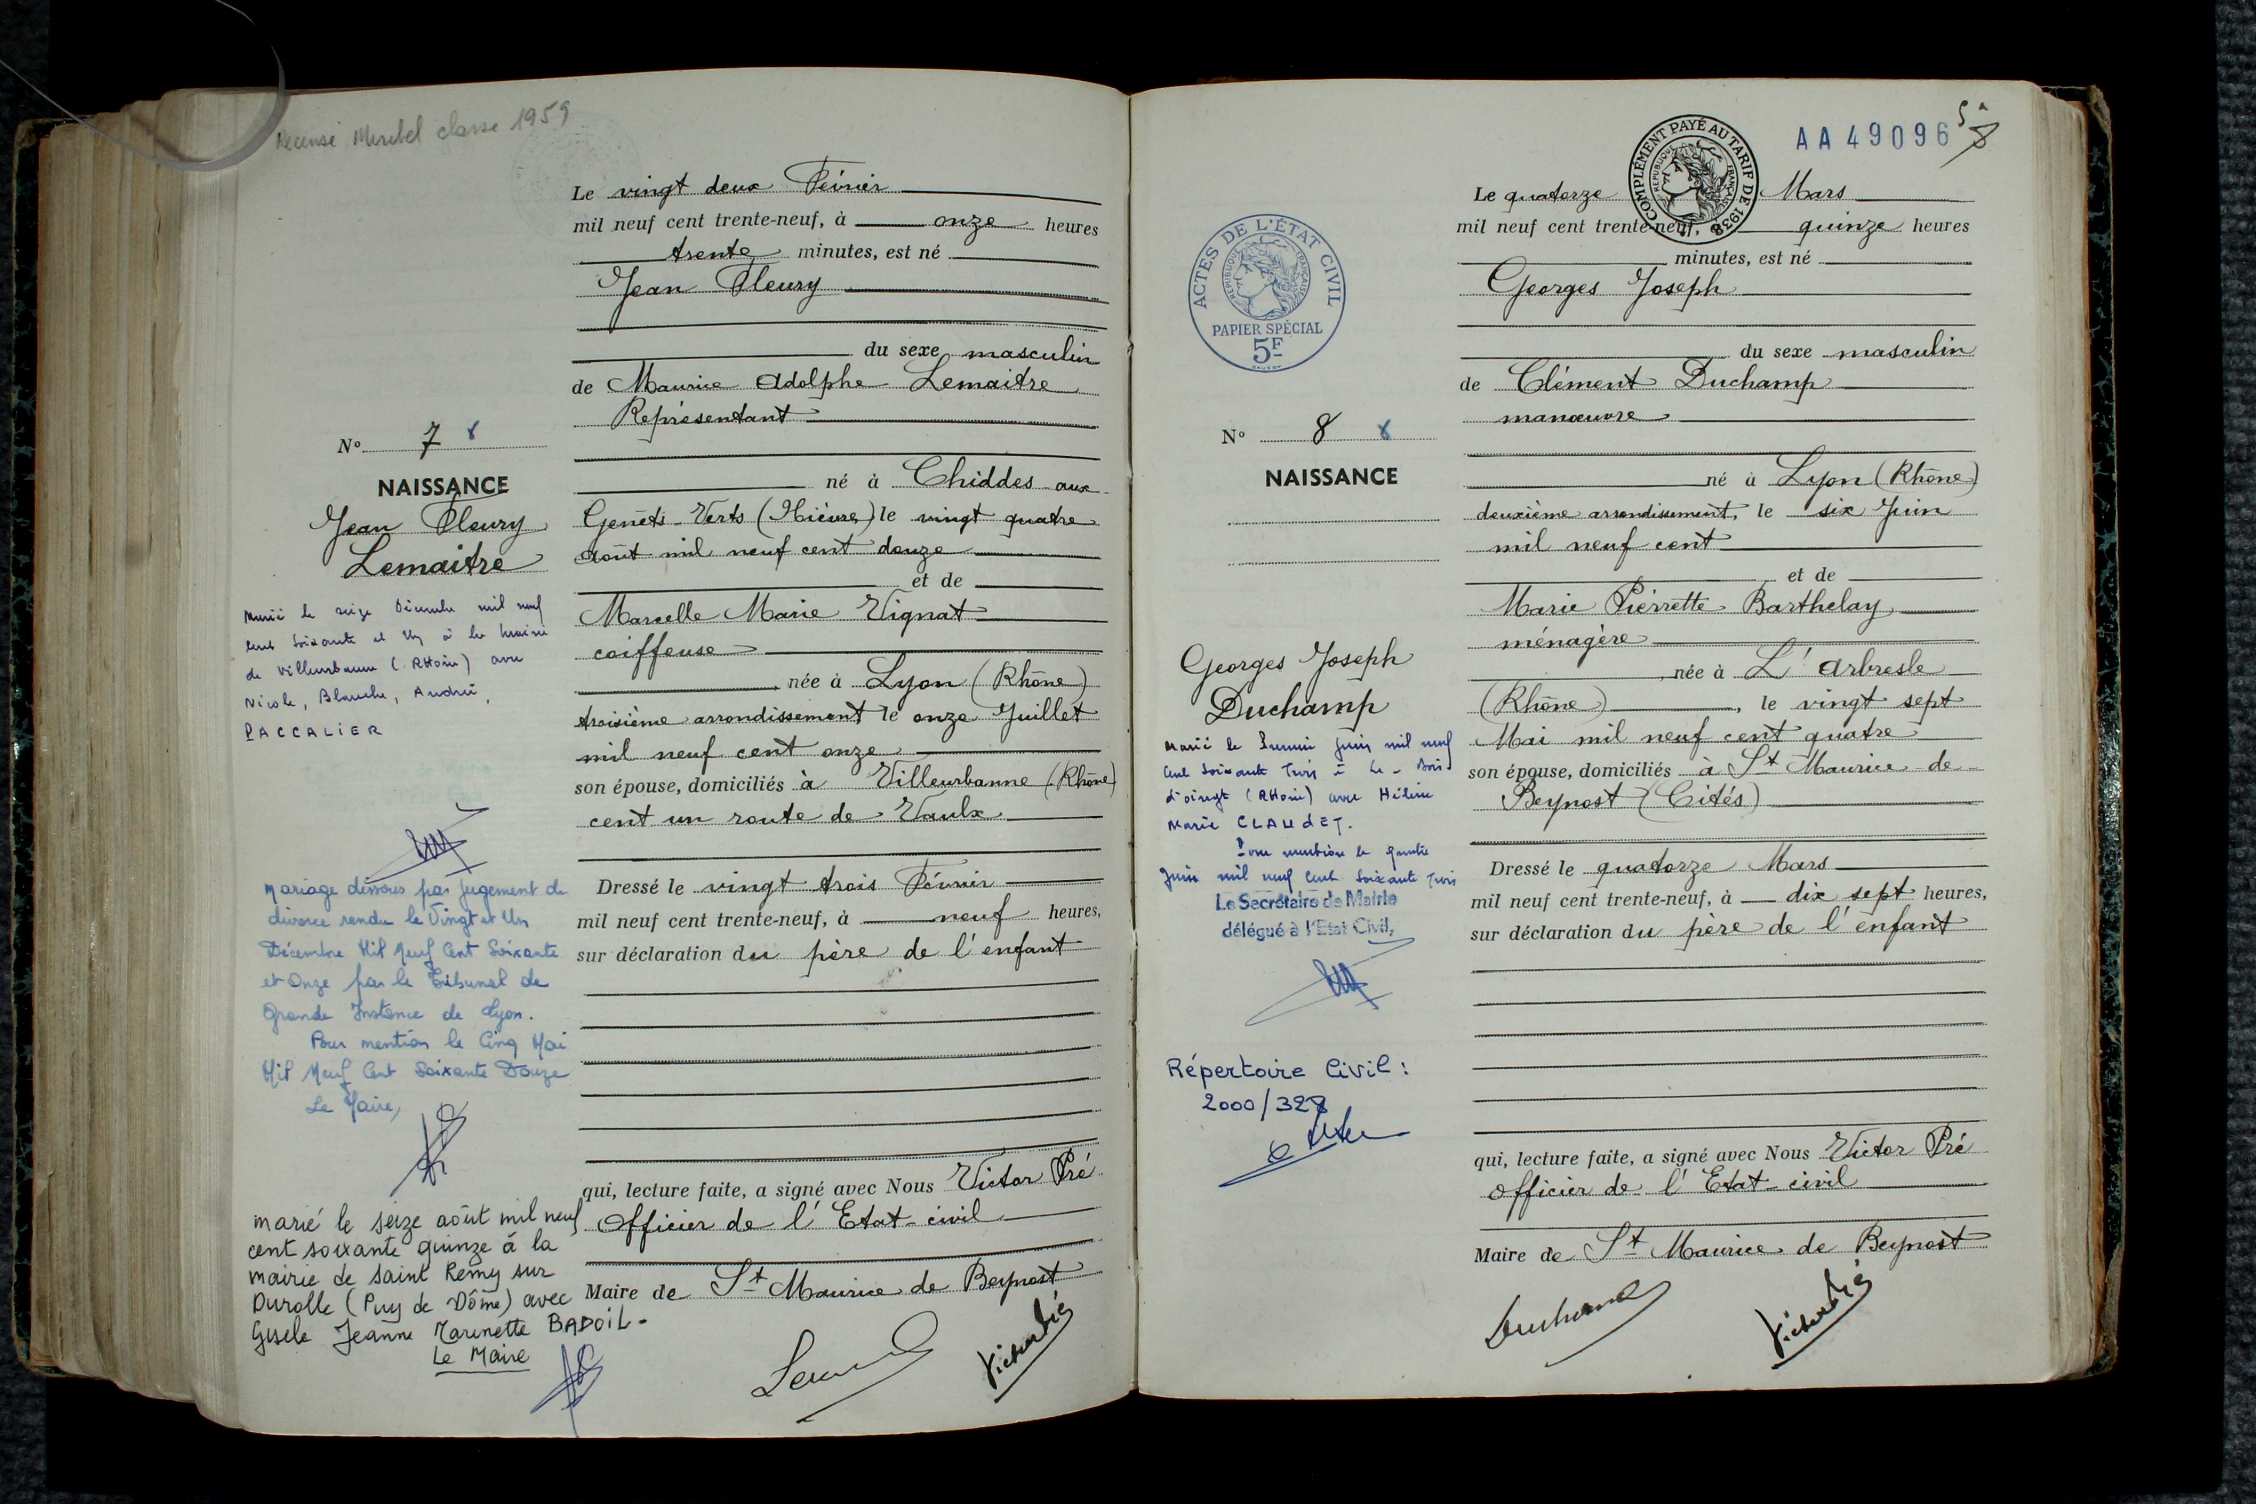 Recensé Miribel classe 1959
Le vingt deux Février
mil neuf cent trente-neuf, à onze heures
trente minutes, est né
Jean Fleury
du sexe masculin
de Maurice Adolphe Lemaitre
Représentant
né à Chiddes aux
Genêts-Verts (Nièvre) le vingt quatre
Août mil neuf cent douze
et de
Marcelle Marie Vignat
coiffeuse
née à Lyon (Rhône)
troisième arrondissement le onze Juillet
mil neuf cent onze
son épouse, domiciliés à Villeurbanne (Rhône)
cent un route de Vaulx
Dressé le vingt trois Février
mil neuf cent trente-neuf, à neuf heures,
sur déclaration du père de l'enfant
qui, lecture faite, a signé avec Nous Victor Pré
Officier de l'Etat-civil
Maire de St Maurice de Beynost
Victor Pré
No 7 8
NAISSANCE
Jean Fleury
Lemaitre
Marié le seize Décembre mil neuf
cent soixante et un à la mairie
de Villeurbanne (Rhône) avec
Nicole, Blanche, Andrée,
PACCALIER
Mariage dissous par jugement de
divorce rendu le Vingt et Un
Décembre Mil Neuf Cent Soixante
et Onze par le Tribunal de
Grande Instance de Lyon.
Pour mention le Cinq Mai
Mil Neuf Cent Soixante Douze
Le Maire,
marié le seize août mil neuf
cent soixante quinze à la
mairie de Saint Remy sur
Durolle (Puy de Dôme) avec
Gisele Jeanne Marinette BADOIL-
Le Maire
AA 49096
5
8
COMPLÉMENT PAYÉ AU TARIF DE 1938
RÉPUBLIQUE FRANÇAISE
Le quatorze Mars
mil neuf cent trente-neuf, à quinze heures
minutes, est né
Georges Joseph
du sexe masculin
de Clément Duchamp
manœuvre
né à Lyon (Rhône)
deuxième arrondissement, le six Juin
mil neuf cent
et de
Marie Pierrette Barthelay
ménagère
née à L'Arbresle
(Rhône), le vingt sept
Mai mil neuf cent quatre
son épouse, domiciliés à St Maurice de
Beynost (Cités)
Dressé le quatorze Mars
mil neuf cent trente-neuf, à dix sept heures,
sur déclaration du père de l'enfant
qui, lecture faite, a signé avec Nous Victor Pré
Officier de l'Etat-civil
Maire de St Maurice de Beynost
Duchamp
Victor Pré
ACTES DE L'ÉTAT CIVIL
RÉPUBLIQUE FRANÇAISE
PAPIER SPÉCIAL
5F
No 8 8
NAISSANCE
Georges Joseph
Duchamp
Marié le Premier Juin mil neuf
cent soixante trois à Le-Bois
d'oingt (Rhône) avec Hélène
Marie CLAUDET.
Pour mention le quatre
Juin mil neuf cent soixante trois
Le Secrétaire de Mairie
délégué à l'Etat Civil,
Répertoire Civil :
2000/328